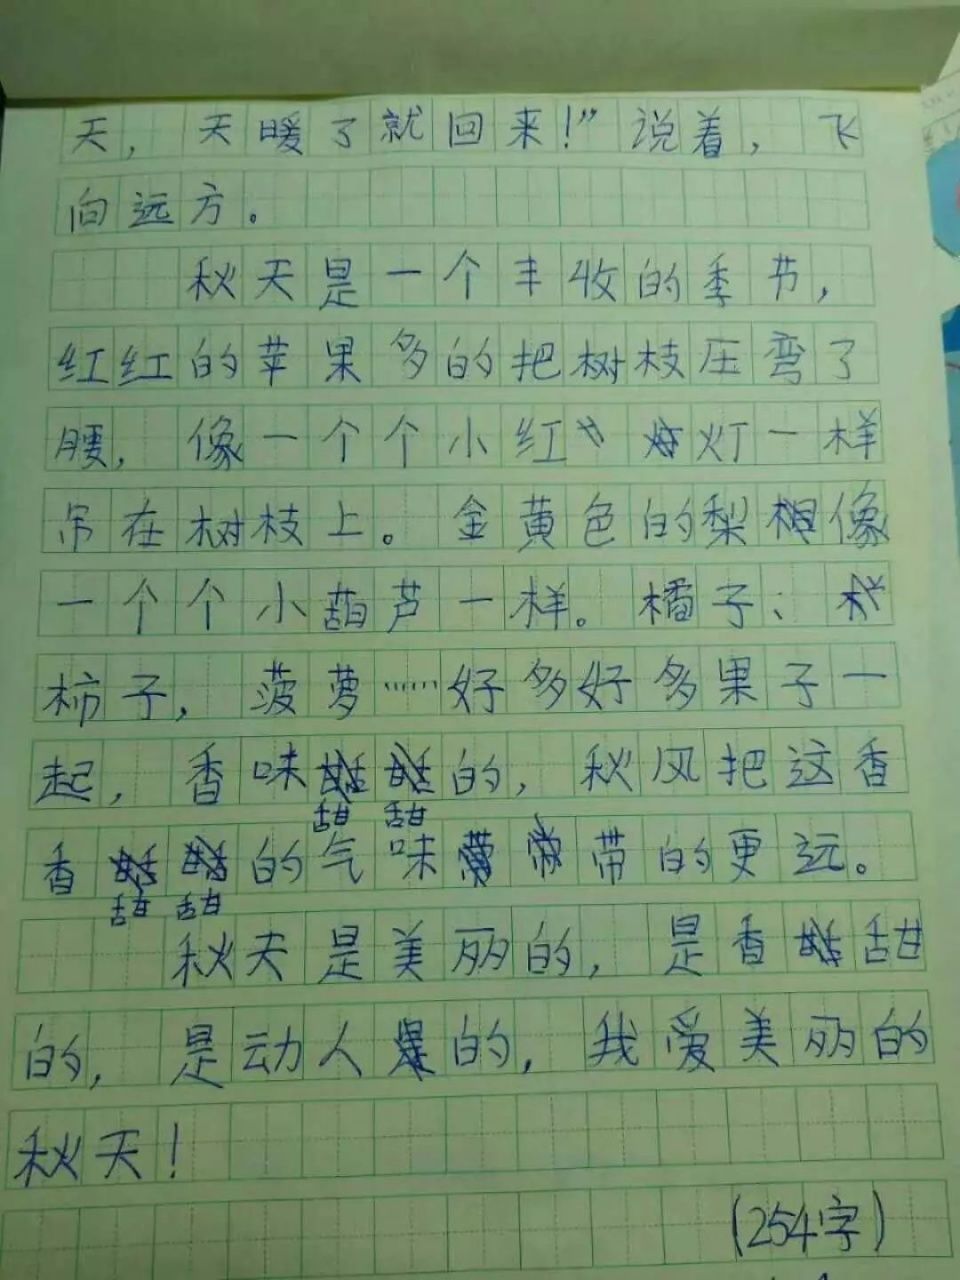 天，天暖了就回来！”说着，飞
向远方。
秋天是一个丰收的季节，
红红的苹果多的把树枝压弯了
腰，像一个个小红灯一样
吊在树枝上。金黄色的梨像
一个个小葫芦一样。橘子、
柿子，菠萝……好多好多果子一
起，香味甜甜的，秋风把这香
香甜甜的气味带的更远。
秋天是美丽的，是香甜
的，是动人的，我爱美丽的
秋天！
(254字)